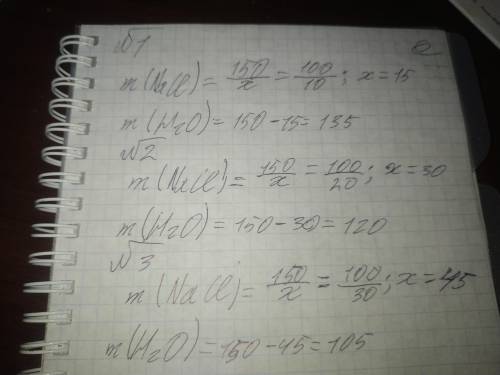 №1
m(NaCl) = 150/x = 100/10; x = 15
m(H₂O) = 150 - 15 = 135
№2
m(NaCl) = 150/x = 100/20; x = 30
m(H₂O) = 150 - 30 = 120
№3
m(NaCl) = 150/x = 100/30; x = 45
m(H₂O) = 150 - 45 = 105